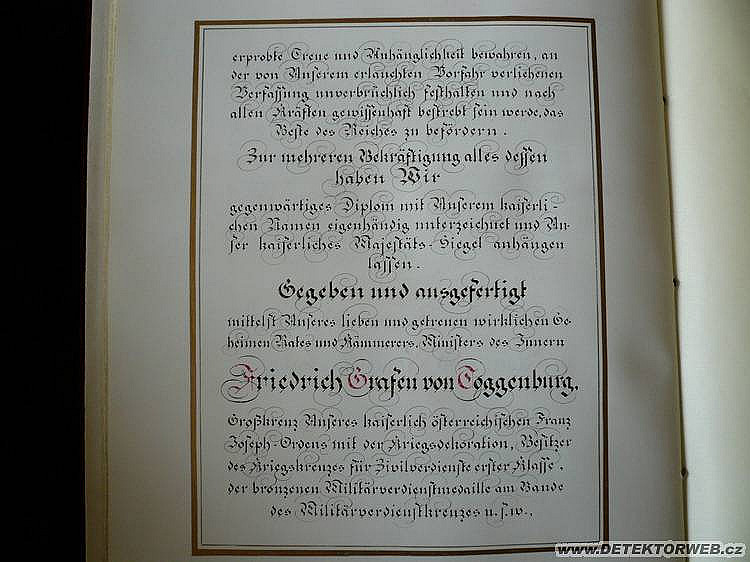 erprobte Treue und Anhänglichkeit bewahren, an
der von Unserem erlauchten Vorfahr verliehenen
Verfassung unverbrüchlich festhalten und nach
allen Kräften gewissenhaft bestrebt sein werde, das
Beste des Reiches zu befördern.
Zur mehreren Bekräftigung alles dessen
haben Wir
gegenwärtiges Diplom mit Unserem kaiserli-
chen Namen eigenhändig unterzeichnet und Un-
ser kaiserliches Majestäts-Siegel anhängen
lassen.
Gegeben und ausgefertigt
mittelst Unseres lieben und getreuen wirklichen Ge-
heimen Rates und Kämmerers, Ministers des Innern
Friedrich Grafen von Toggenburg,
Großkrenz Unseres kaiserlich österreichischen Franz
Joseph-Ordens mit der Kriegsdekoration, Besitzer
des Kriegskreuzes für Zivilverdienste erster Klasse,
der bronzenen Militärverdienstmedaille am Bande
des Militärverdienstkreuzes u.s.w.,
www.DETEKTORWEB.cz